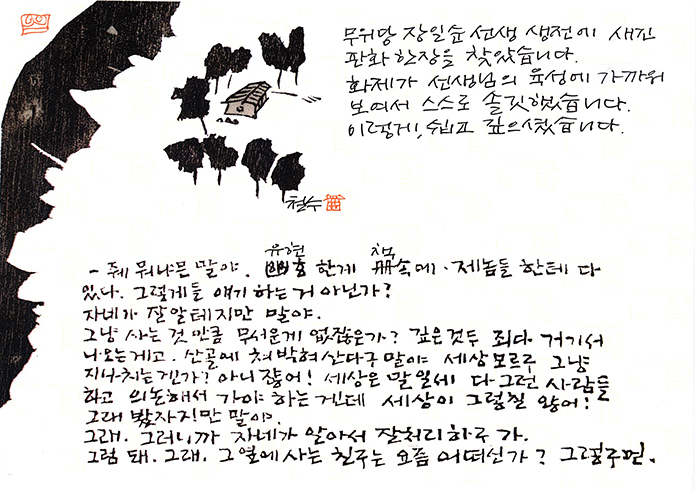 무위당 장일순 선생 생전에 새긴
판화 한장을 찾았습니다.
화제가 선생님의 육성에 가까워
보여서 스스로 솔깃했습니다.
이렇게, 쉽고 깊으셨습니다.
철수
유현 책
- 줴 뭐냐믄 말야. 幽玄 한게 冊속에. 제놈들 한테 다
있다. 그렇게들 얘기 하는거 아닌가?
자네가 잘 알테지만 말야.
그냥 사는 것 만큼 무서운게 없잖은가? 깊은것두 죄다 거기서
나오는게고. 산골에 쳐박혀 산다구 말야 세상모르구 그냥
지나치는겐가? 아니 잖어! 세상은 말일세 다 그런 사람들
하고 의논해서 가야 하는겐데 세상이 그렇질 않어!
그래 봤자지만 말야.
그래. 그러니까 자네가 알아서 잘처리하구 가.
그럼 돼. 그래. 그 옆에 사는 친구는 요즘 어떠신가? 그렇구먼.